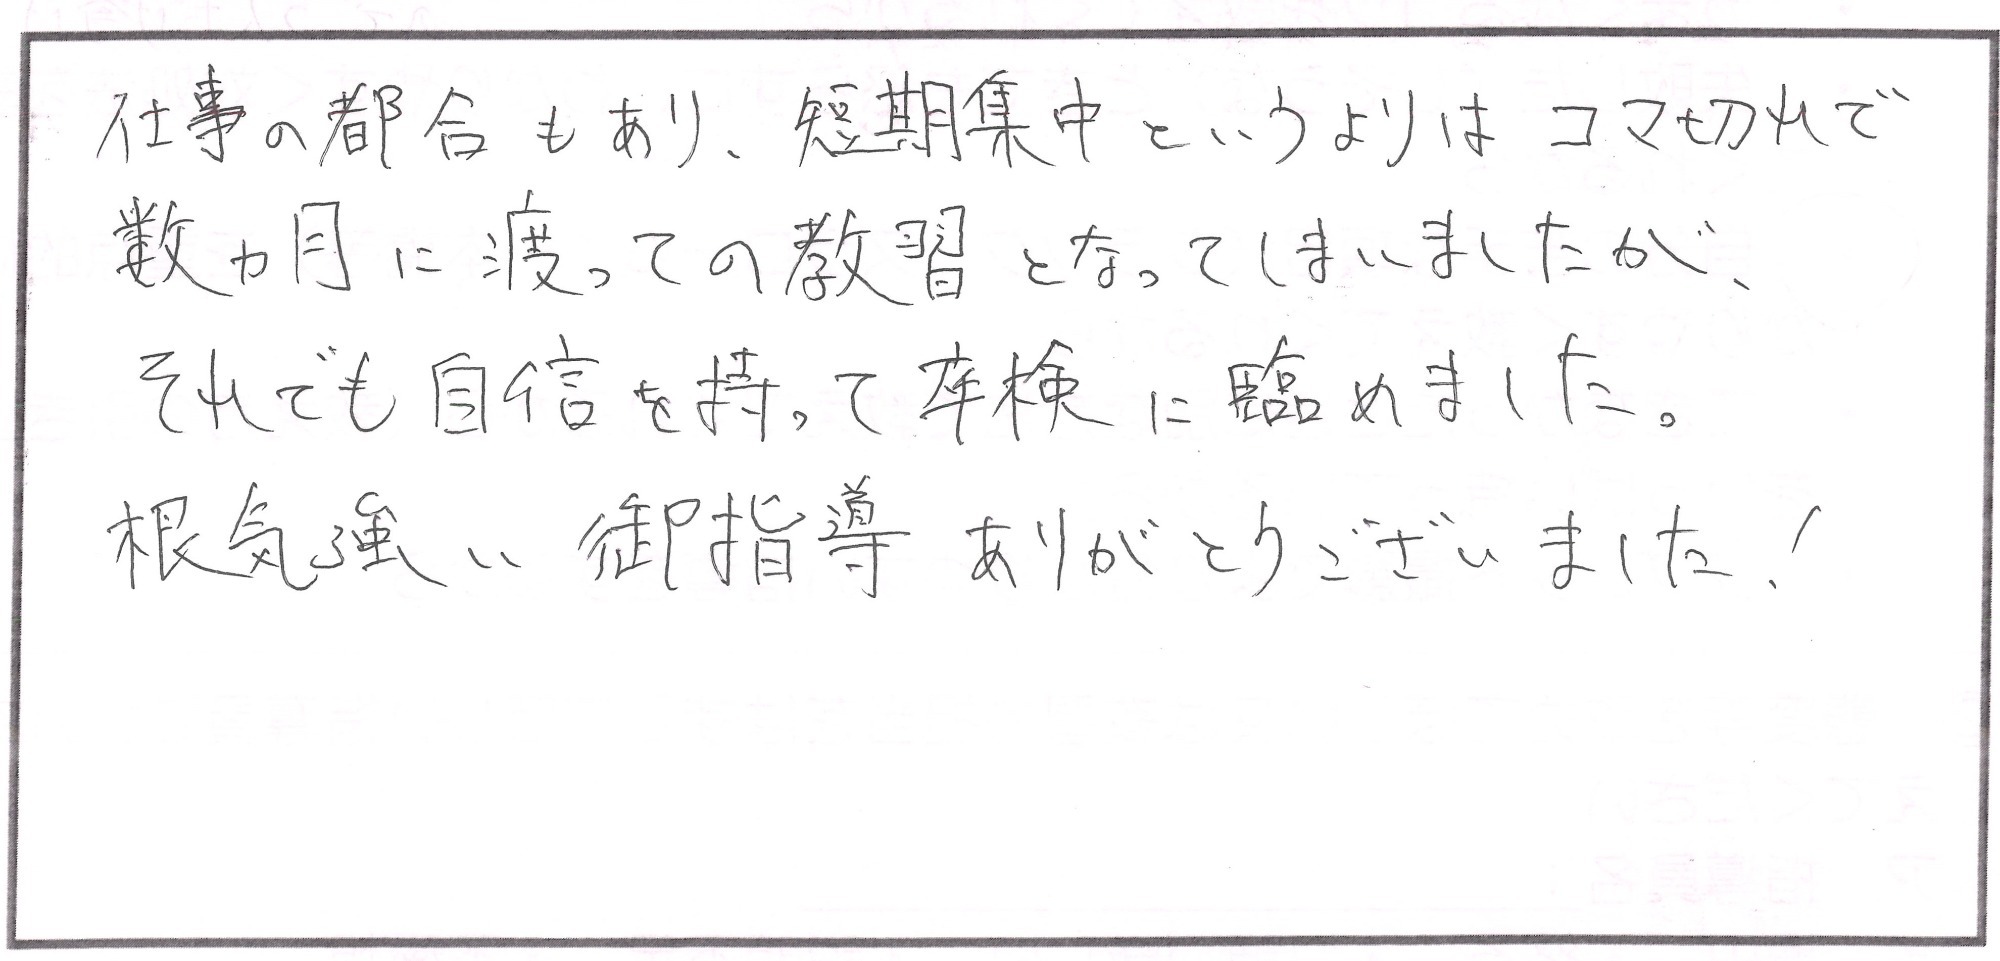 仕事の都合もあり、短期集中というよりはコマ切れで
数ヵ月に渡っての教習となってしまいましたが、
それでも自信を持って卒検に臨めました。
根気強い御指導ありがとうございました!